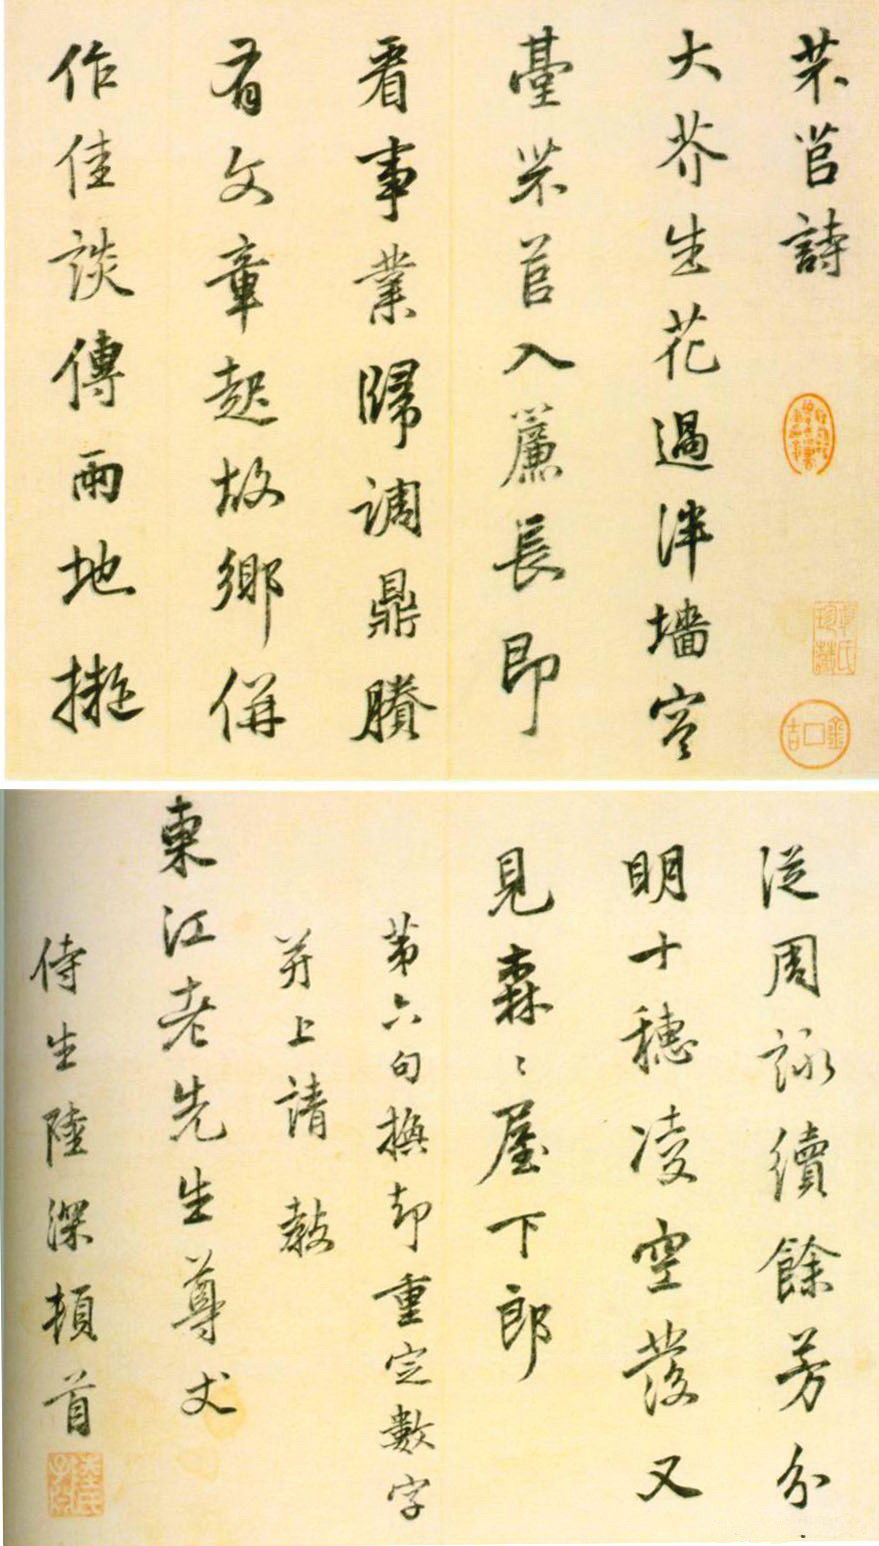 芣苢詩
大芥生花過泮墻
臺芣苢入簾長即
看事業歸調鼎賸
有文章起故鄉併
作佳談傳兩地擬
從周詠續餘芳分
明十穗凌空發又
見森〻屋下郎
第六句撫却重定數字
并上請教
東江老先生尊丈
侍生陸深頓首